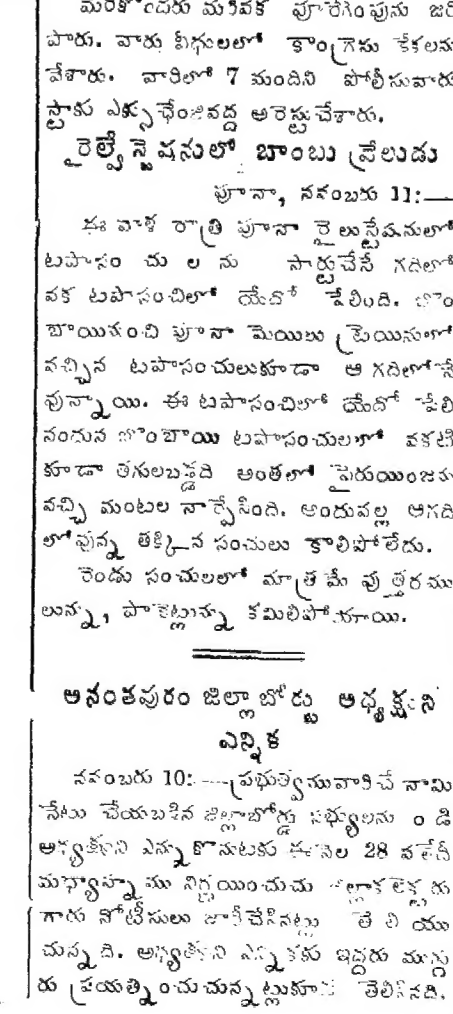 మరికొందరు మకివక పూరేగింపును జరి
పారు. వారు వీధులలో కాంగ్రెసు కేకలను
వేశారు. వారిలో 7 మందిని పోలీసువారు
స్టాకు ఎక్స్ఛేంజివద్ద అరెస్టుచేశారు.
రైల్వే స్టేషనులో బాంబు ప్రేలుడు
పూనా, నవంబరు 11:—
ఈ వాళ రాత్రి పూనా రైలుస్టేషనులో
టపాసం చు ల ను సార్టుచేసే గదిలో
వక టపాసంచిలో యేదో పేలింది. బొం
బాయినుంచి పూనా మెయిలు ట్రెయినులో
వచ్చిన టపాసంచులుకూడా ఆ గదిలోనే
వున్నాయి. ఈ టపాసంచిలో యేదో పేలి
నందున బొంబాయి టపాసంచులలో వకటి
కూడా తగులబడ్డది అంతలో ఫైరుయింజను
వచ్చి మంటల నార్పేసింది. అందువల్ల ఆగది
లోవున్న తక్కిన సంచులు కాలిపోలేదు.
రెండు సంచులలో మాత్రమే వుత్తరము
లున్ను, పాకెట్లున్ను కమిలిపోయాయి.
అనంతపురం జిల్లాబోర్డు అధ్యక్షుని
ఎన్నిక
నవంబరు 10:—ప్రభుత్వమువారిచే నామి
నేటు చేయబడిన జిల్లాబోర్డు సభ్యులను ండి
అధ్యక్షుని ఎన్నుకొనుటకు ఈనెల 28 వతేదీ
మధ్యాహ్నము నిర్ణయించుచు జిల్లాకలెక్టరు
గారు నోటీసులు జారీచేసినట్లు తె లి యు
చున్నది. అధ్యక్షుని ఎన్నికకు ఇద్దరు మాస్ట
రు ప్రయత్నించుచున్నట్లుకూడ తెలిసినది.